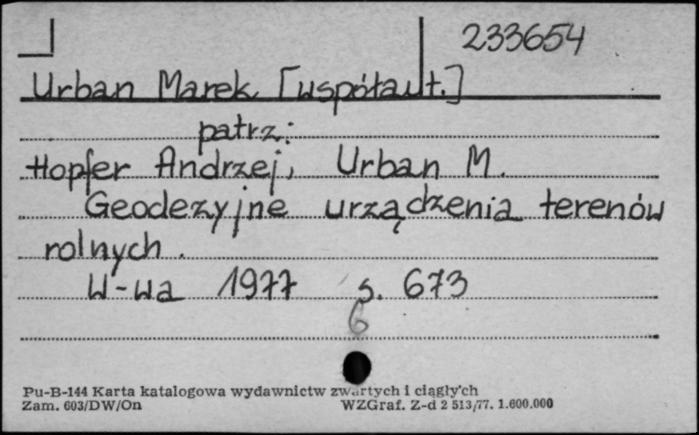 233654
Urban Marek [współaut.]
patrz:
Hopfer Andrzej, Urban M.
Geodezyjne urządzenia terenów
rolnych.
W-wa 1977 s. 673
6
Pu-B-144 Karta katalogowa wydawnictw zwartych i ciągłych
Zam. 603/DW/On WZGraf. Z-d 2 513/77. 1.600.000